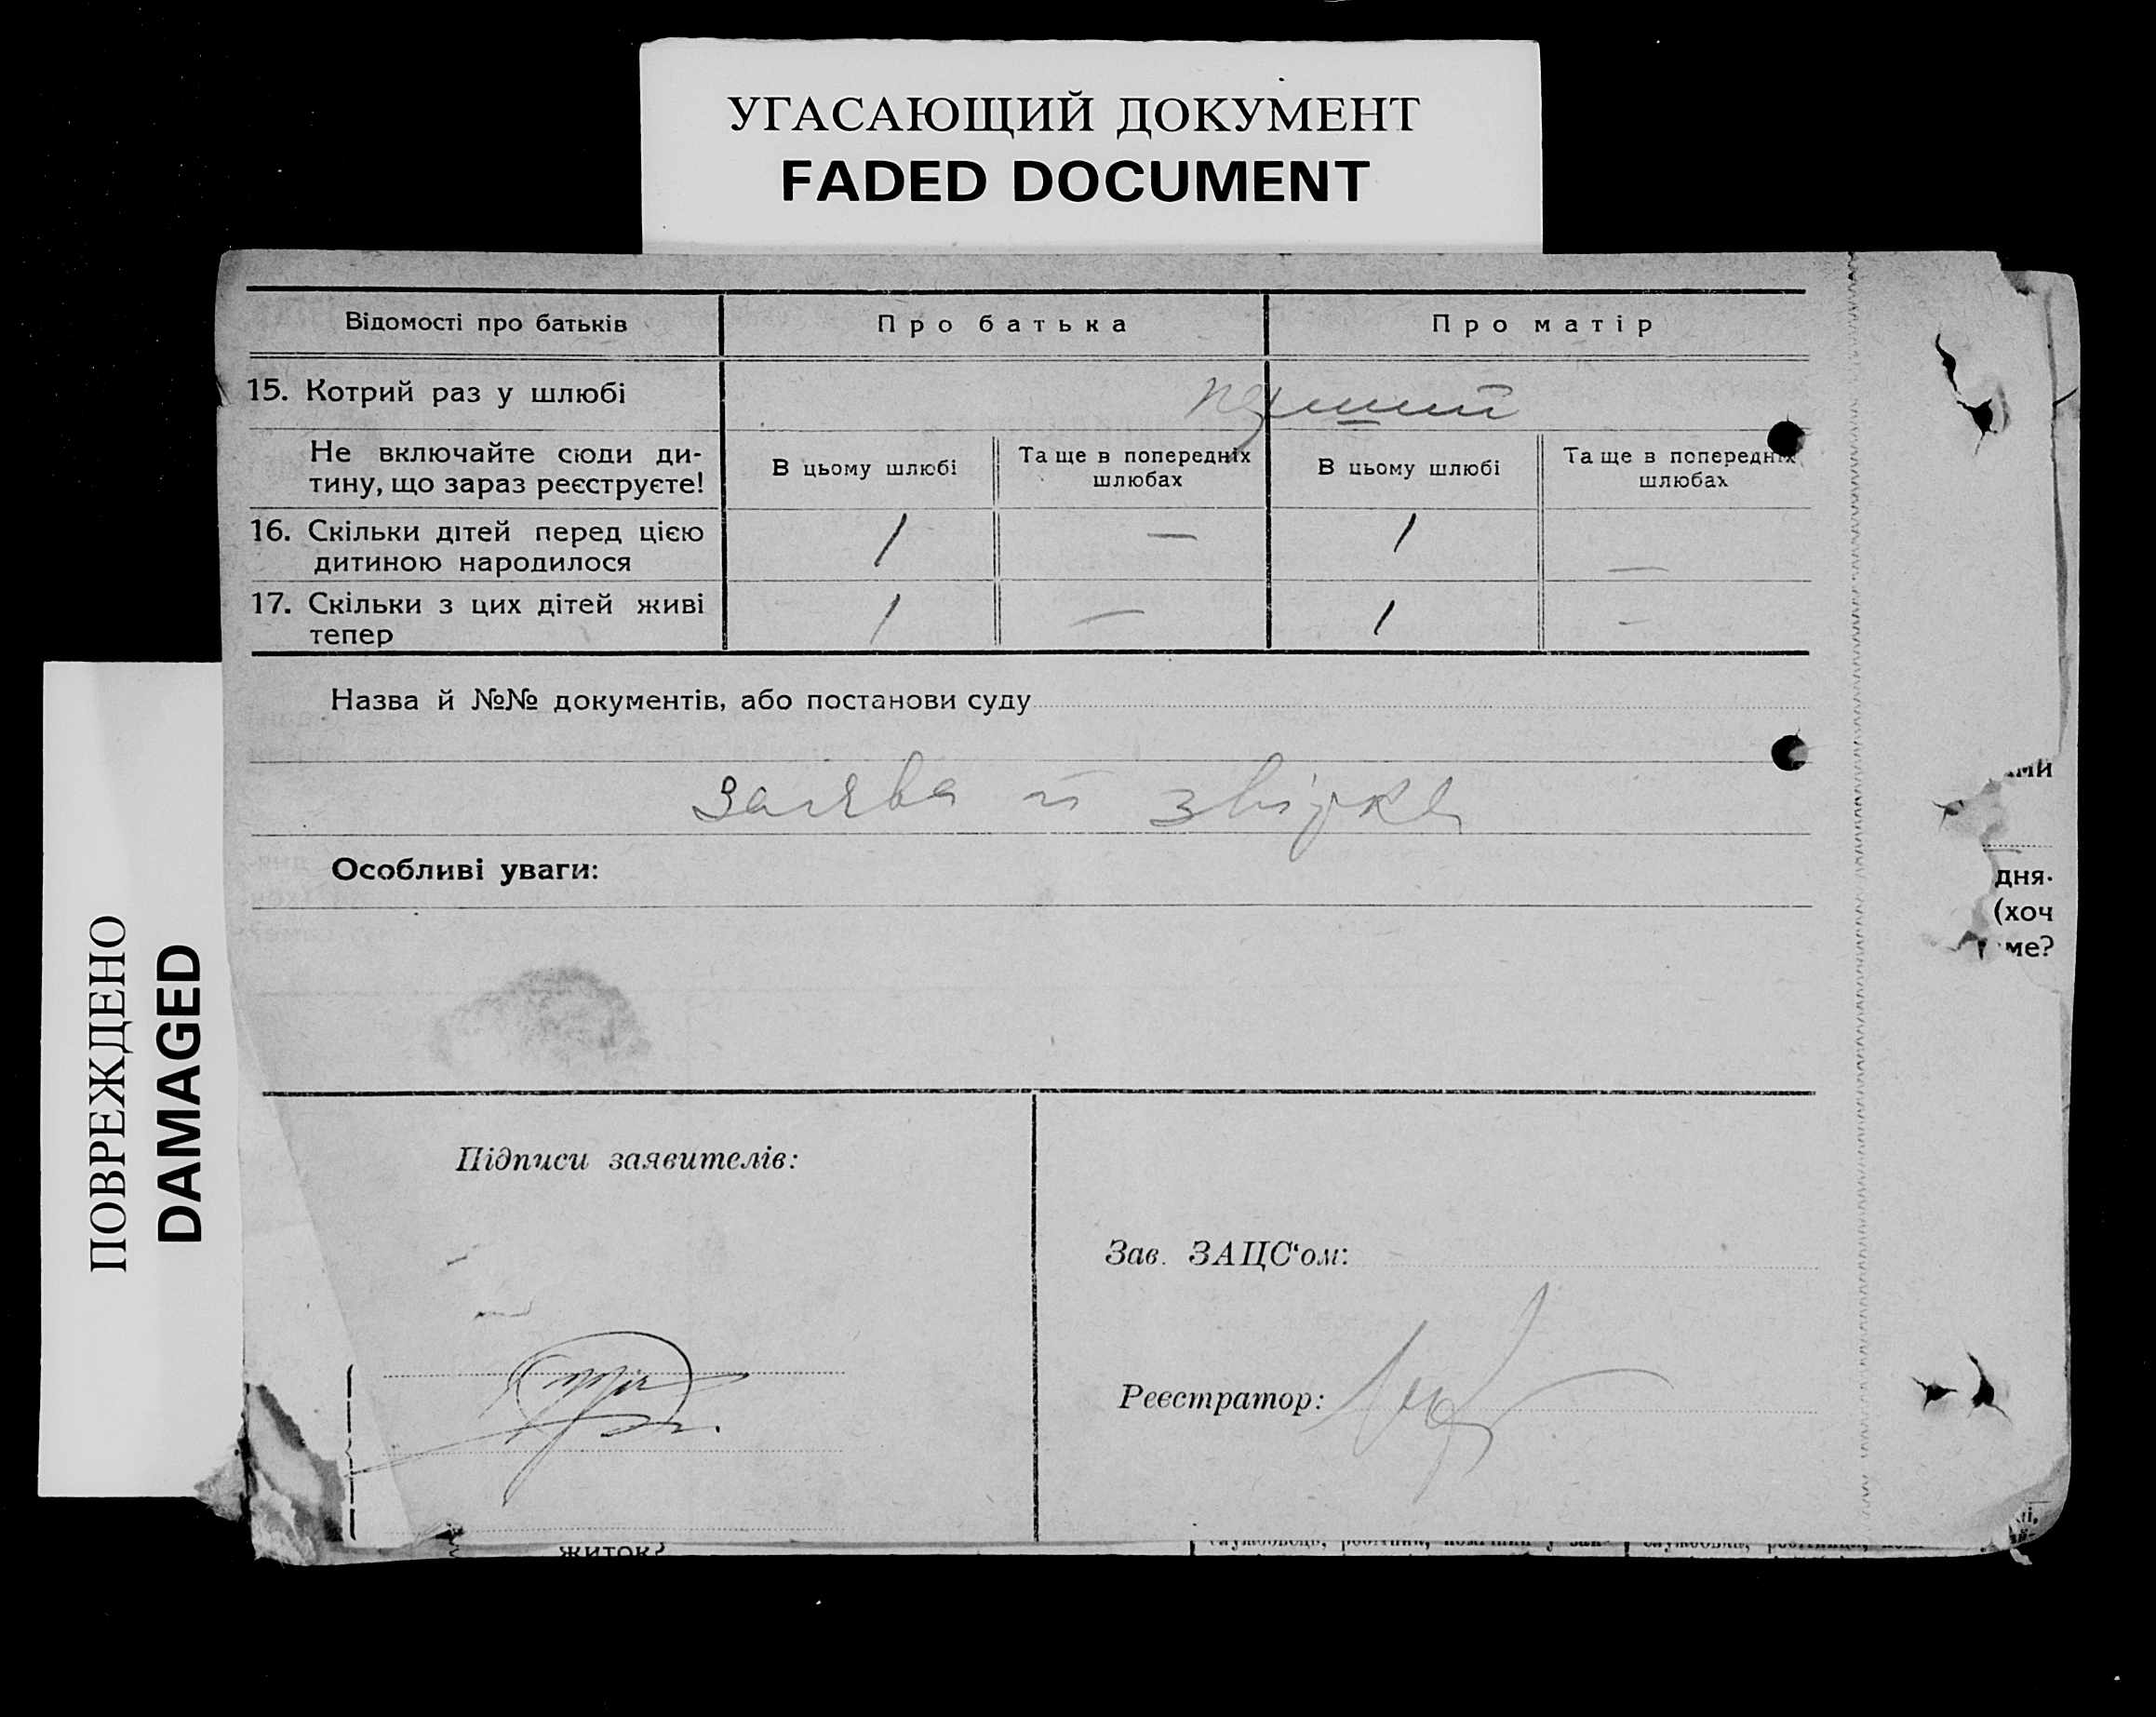 УГАСАЮЩИЙ ДОКУМЕНТ
FADED DOCUMENT
ПОВРЕЖДЕНО
DAMAGED
Відомості про батьків
Про батька
Про матір
15. Котрий раз у шлюбі
перший
Не включайте сюди ди-
тину, що зараз реєструєте!
В цьому шлюбі
Та ще в попередніх
шлюбах
В цьому шлюбі
Та ще в попередніх
шлюбах
16. Скільки дітей перед цією
дитиною народилося
1
—
1
—
17. Скільки з цих дітей живі
тепер
1
—
1
—
Назва й №№ документів, або постанови суду
заява й звірка
Особливі уваги:
Підписи заявителів:
Зав. ЗАЦС‘ом:
Реєстратор:
дня-
(хоч
ме?
житок?